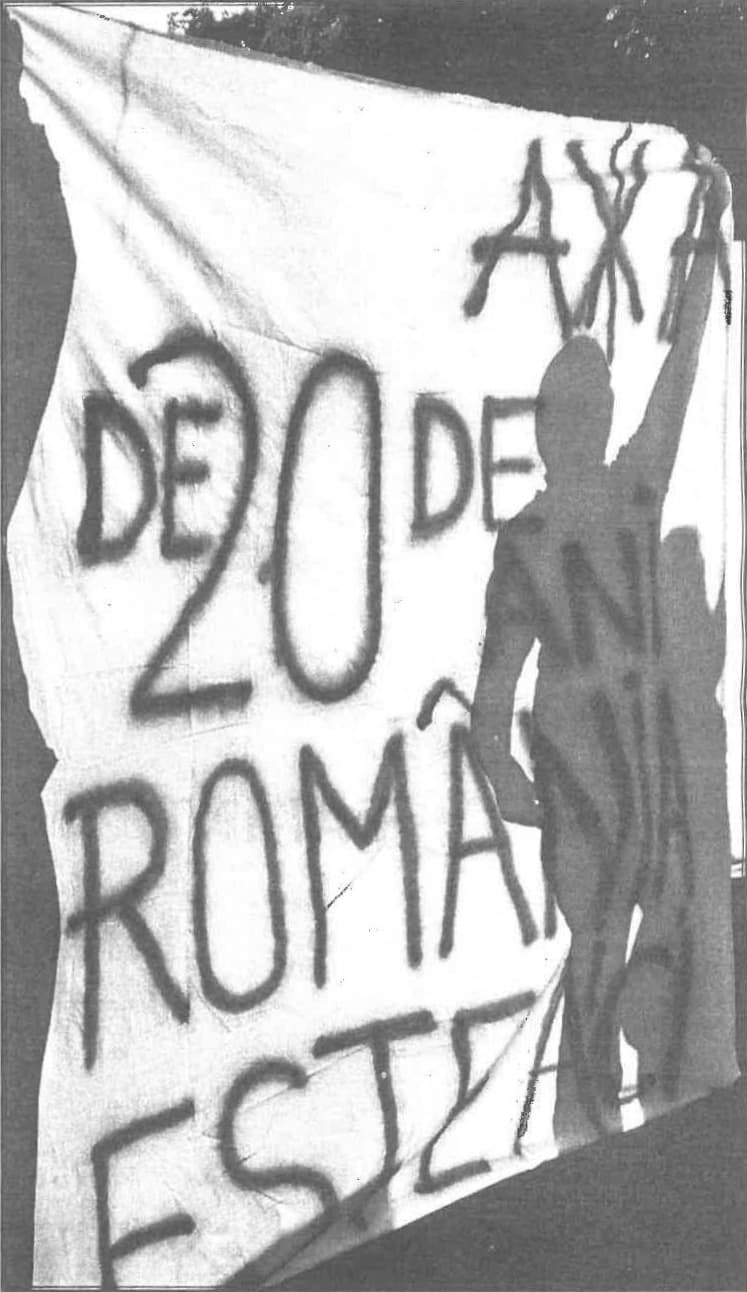 AXA
DE 20 DE
ANI
ROMÂNIA
ESTE